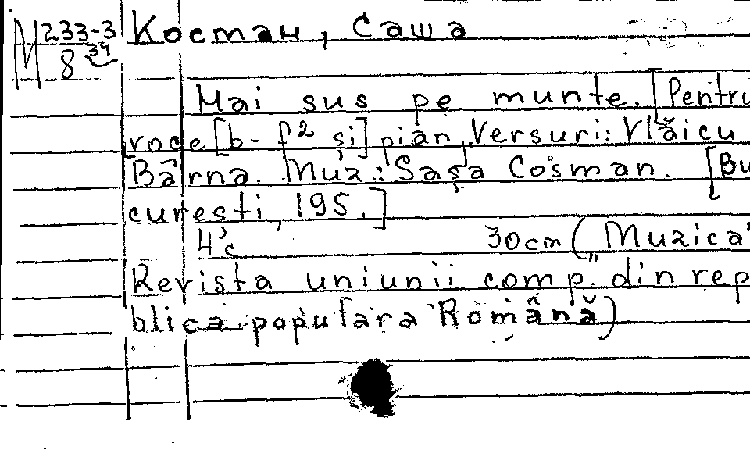 М 233-3 Косман, Саша
8 39
Mai sus pe munte. [Pentru
voce [b-f² şi] pian. Versuri: Vlăicu
Bârna. Muz.: Saşa Cosman. [Bu
cureşti, 195.]
4 c 30cm („Muzica"
Revista uniunii comp. din rep
blica populara Română)